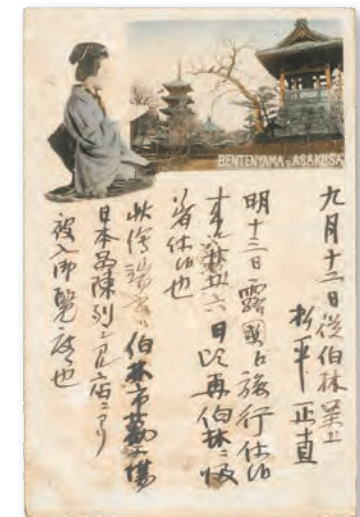 BENTENYAMA, ASAKUSA
九月十二日從伯林呈上
松平正直
明十三日露國ヘ旅行仕候
来 五六日比再伯林ニ
着仕候也
此繪端書ハ伯林市勸工場
日本品陳列シアル店ニアリ
被入御覧候也